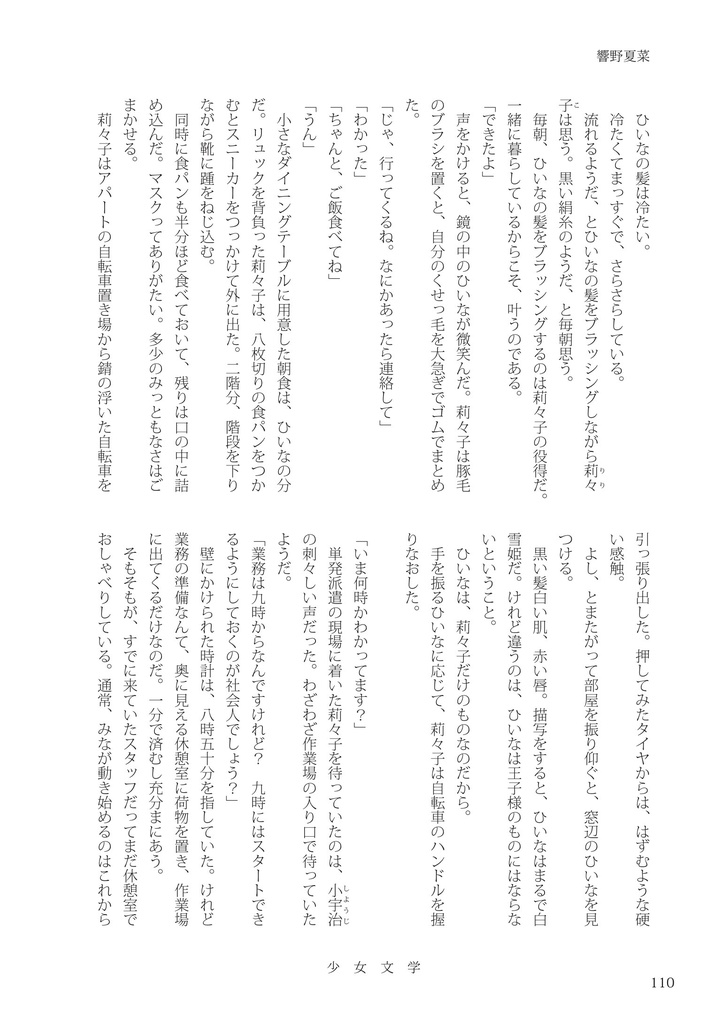 響野夏菜
ひいなの髪は冷たい。
冷たくてまっすぐで、さらさらしている。
流れるようだ、とひいなの髪をブラッシングしながら莉々
子は思う。黒い絹糸のようだ、と毎朝思う。
毎朝、ひいなの髪をブラッシングするのは莉々子の役得だ。
一緒に暮らしているからこそ、叶うのである。
「できたよ」
声をかけると、鏡の中のひいなが微笑んだ。莉々子は豚毛
のブラシを置くと、自分のくせっ毛を大急ぎでゴムでまとめ
た。
「じゃ、行ってくるね。なにかあったら連絡して」
「わかった」
「ちゃんと、ご飯食べてね」
「うん」
小さなダイニングテーブルに用意した朝食は、ひいなの分
だ。リュックを背負った莉々子は、八枚切りの食パンをつか
むとスニーカーをつっかけて外に出た。二階分、階段を下り
ながら靴に踵をねじ込む。
同時に食パンも半分ほど食べておいて、残りは口の中に詰
め込んだ。マスクってありがたい。多少のみっともなさはご
まかせる。
莉々子はアパートの自転車置き場から錆の浮いた自転車を
引っ張り出した。押してみたタイヤからは、はずむような硬
い感触。
よし、とまたがって部屋を振り仰ぐと、窓辺のひいなを見
つける。
黒い髪白い肌、赤い唇。描写をすると、ひいなはまるで白
雪姫だ。けれど違うのは、ひいなは王子様のものにはならな
いということ。
ひいなは、莉々子だけのものなのだから。
手を振るひいなに応じて、莉々子は自転車のハンドルを握
りなおした。
「いま何時かわかってます？」
単発派遣の現場に着いた莉々子を待っていたのは、小宇治
の刺々しい声だった。わざわざ作業場の入り口で待っていた
ようだ。
「業務は九時からなんですけれど？　九時にはスタートでき
るようにしておくのが社会人でしょう？」
壁にかけられた時計は、八時五十分を指していた。けれど
業務の準備なんて、奥に見える休憩室に荷物を置き、作業場
に出てくるだけなのだ。一分で済むし充分まにあう。
そもそもが、すでに来ていたスタッフだってまだ休憩室で
おしゃべりしている。通常、みなが動き始めるのはこれから
少女文学
110